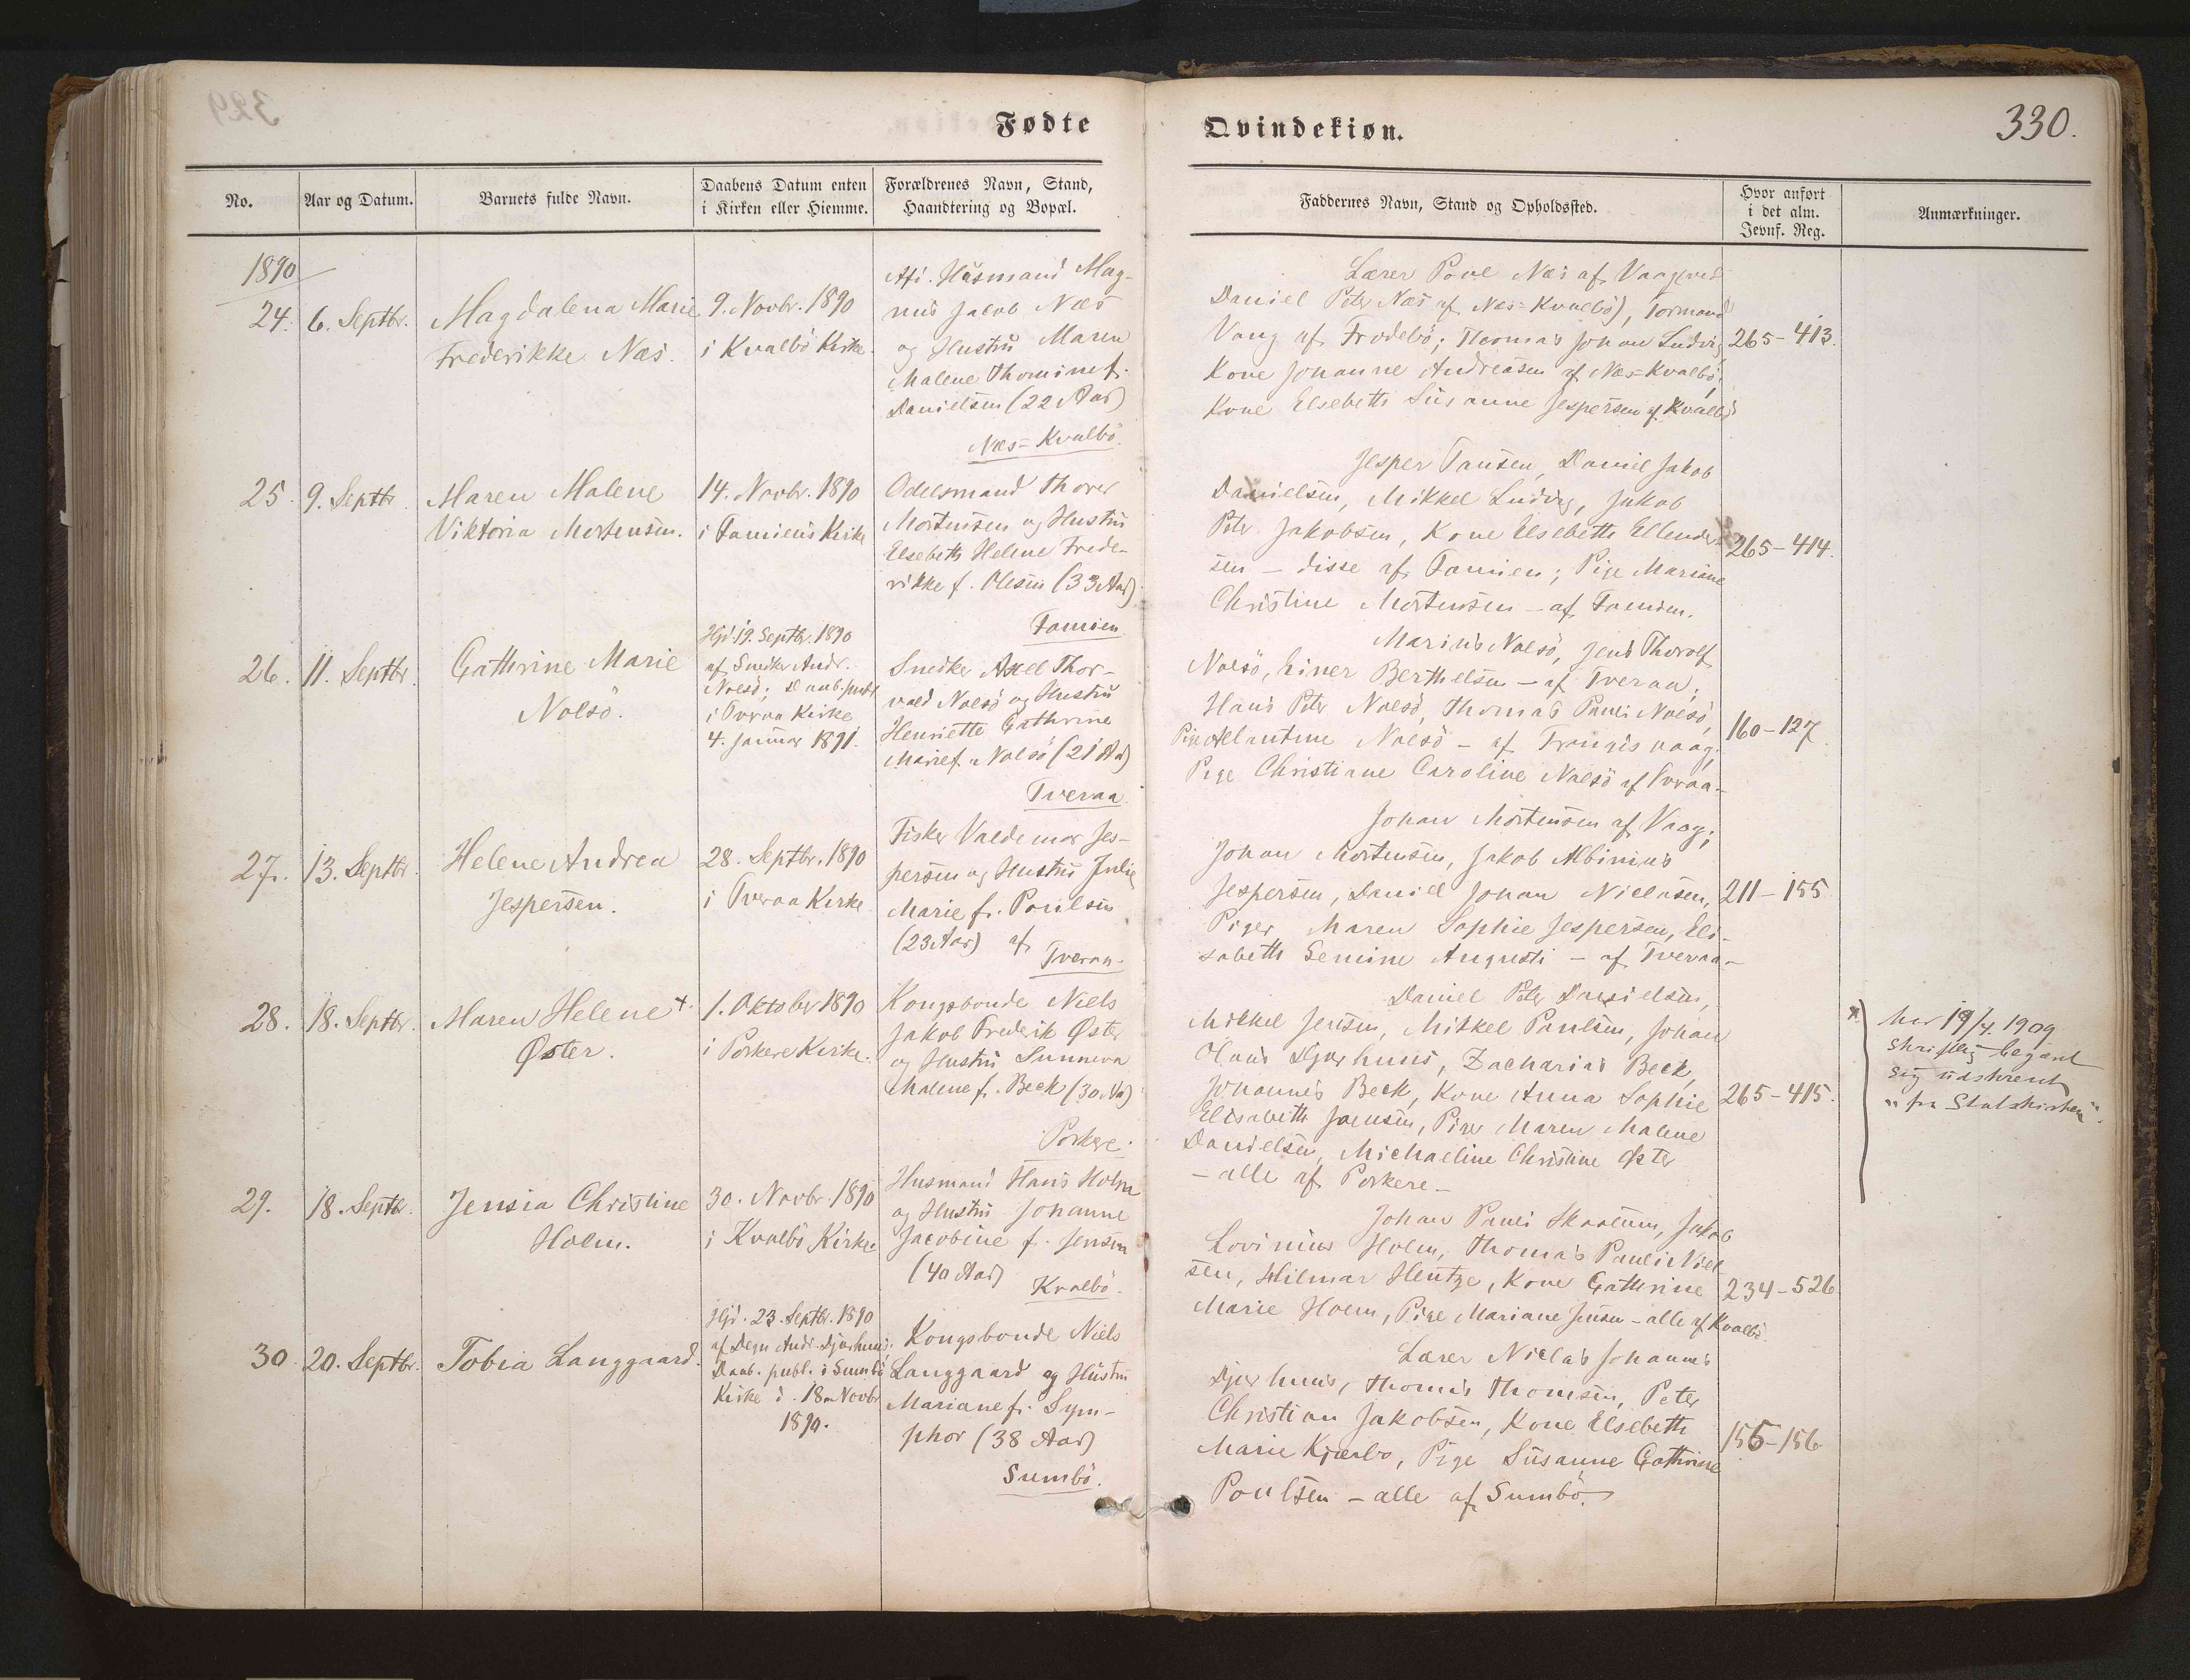 Fødte
Qvindekiøn.
330.
No.
Aar og Datum.
Barnets fulde Navn.
Daabens Datum enten
i Kirken eller Hiemme.
Forældrenes Navn, Stand,
Haandtering og Bopæl.
Faddernes Navn, Stand og Opholdssted.
Hvor anført
i det alm.
Jevnf. Reg.
Anmærkninger.
1890
24.
6. Septbr.
Magdalena Marie
Frederikke Næs.
9. Novbr. 1890
i Kvalbö Kirke.
Husmand Mag-
nus Jacob Næs
og Hustru Maren
Malene Thomine f.
Danielsen (22 Aar)
Næs-Kvalbö.
Lærer Poul Næs af
Daniel Peter Næs af Næs-Kvalbö),
Vang af Frodebö; Thomas Johan Ludvig
Kone Johanne Andreasen af Næs-Kvalbö,
Kone Elsebeth Susanne Jespersen af Kvalbö
265-413.
25.
9. Septbr.
Maren Malene
Viktoria Mortensen.
14. Novbr. 1890
i Famiens Kirke
Odelsmand Thorer
Mortensen og Hustru
Elsebeth Helene Frede-
rikke f. Olesen (33 Aar)
Famien
Jesper Tausen, Daniel Jakob
Danielsen, Mikkel Ludvig, Jakob
Peter Jakobsen, Kone Elsebeth Ellender-
sen - disse af Famien; Pige Mariane
Christine Mortensen - af Famien.
265-414.
26.
11. Septbr.
Cathrine Marie
Nolsö.
Hjd. 19. Septbr. 1890
af Snedker Andr.
Nolsö; Daab. publ.
i Tveraa Kirke
4. Januar 1891.
Snedker Axel Thor-
vald Nolsö og Hustru
Henriette Cathrine
Marie f. Nolsö (21 Aar)
Tveraa.
Marius Nolsö, Jens Thorolf
Nolsö, Einer Berthelsen - af Tveraa;
Hans Peter Nolsö, Thomas Pauli Nolsö,
Pige Nolsö - af Trangisvaag;
Pige Christiane Caroline Nolsö af Tvraa-
160-127
27.
13. Septbr.
Helene Andrea
Jespersen.
28. Septbr. 1890
i Tveraa Kirke
Fisker Valdemar Jes-
persen og Hustru Julie
Marie f. Poulsen
(23 Aar) af
Tveraa.
Johan Mortensen af Vaag;
Johan Mortensen, Jakob Albinius
Jespersen, Daniel Johan Nielasen,
Piger Maren Sophie Jespersen, Eli-
sabeth Semine Augusti - af Tveraa-
211-155
28.
18. Septbr.
Maren Helene +
Øster.
1. Oktober 1890
i Porkere Kirke.
Kongsbonde Niels
Jakob Frederik Øster
og Hustru Sunneva
Malene f. Beck (30 Aar)
Porkere.
Daniel Peter Danielsen,
Mikkel Jensen, Mikkel Paulsen, Johan
Olaus Djurhuus, Zacharias Beck,
Johannes Beck, Kone Anna Sophie
Elisabeth Joensen, Piger Maren Malene
Danielsen, Michaeline Christine Øster
- alle af Porkere -
265-415.
har 19/4 1909
skriftlig begært
sig udskrevet
"fra Statskirken".
29.
18. Septbr.
Jensia Christine
Holm.
30. Novbr. 1890
i Kvalbö Kirke.
Husmand Hans Holm
og Hustru Johanne
Jacobine f. Jensen
(40 Aar)
Kvalbö.
Johan Pauli Skaalum, Jakob
Lovinius Holm, Thomas Pauli Niel-
sen, Hilmar Hentze, Kone Cathrine
Marie Holm, Pige Mariane Jensen - alle af Kvalbö.
234-526.
30
20. Septbr.
Tobia Langgaard.
Hjd. 23. Septbr. 1890
af Degn Andr. Djurhuus;
Daab. publ. i Sumbö
Kirke d. 18. Novbr
1890.
Kongsbonde Niels
Langgaard og Hustru
Mariane f. Sym-
phor (38 Aar)
Sumbö.
Lærer Niclas Johannes
Djurhuus, Thomas Thomsen, Peter
Christian Jakobsen, Kone Elsebeth
Marie Kjærbo, Pige Susanne Cathrine
Poulsen - alle af Sumbö.
155-156